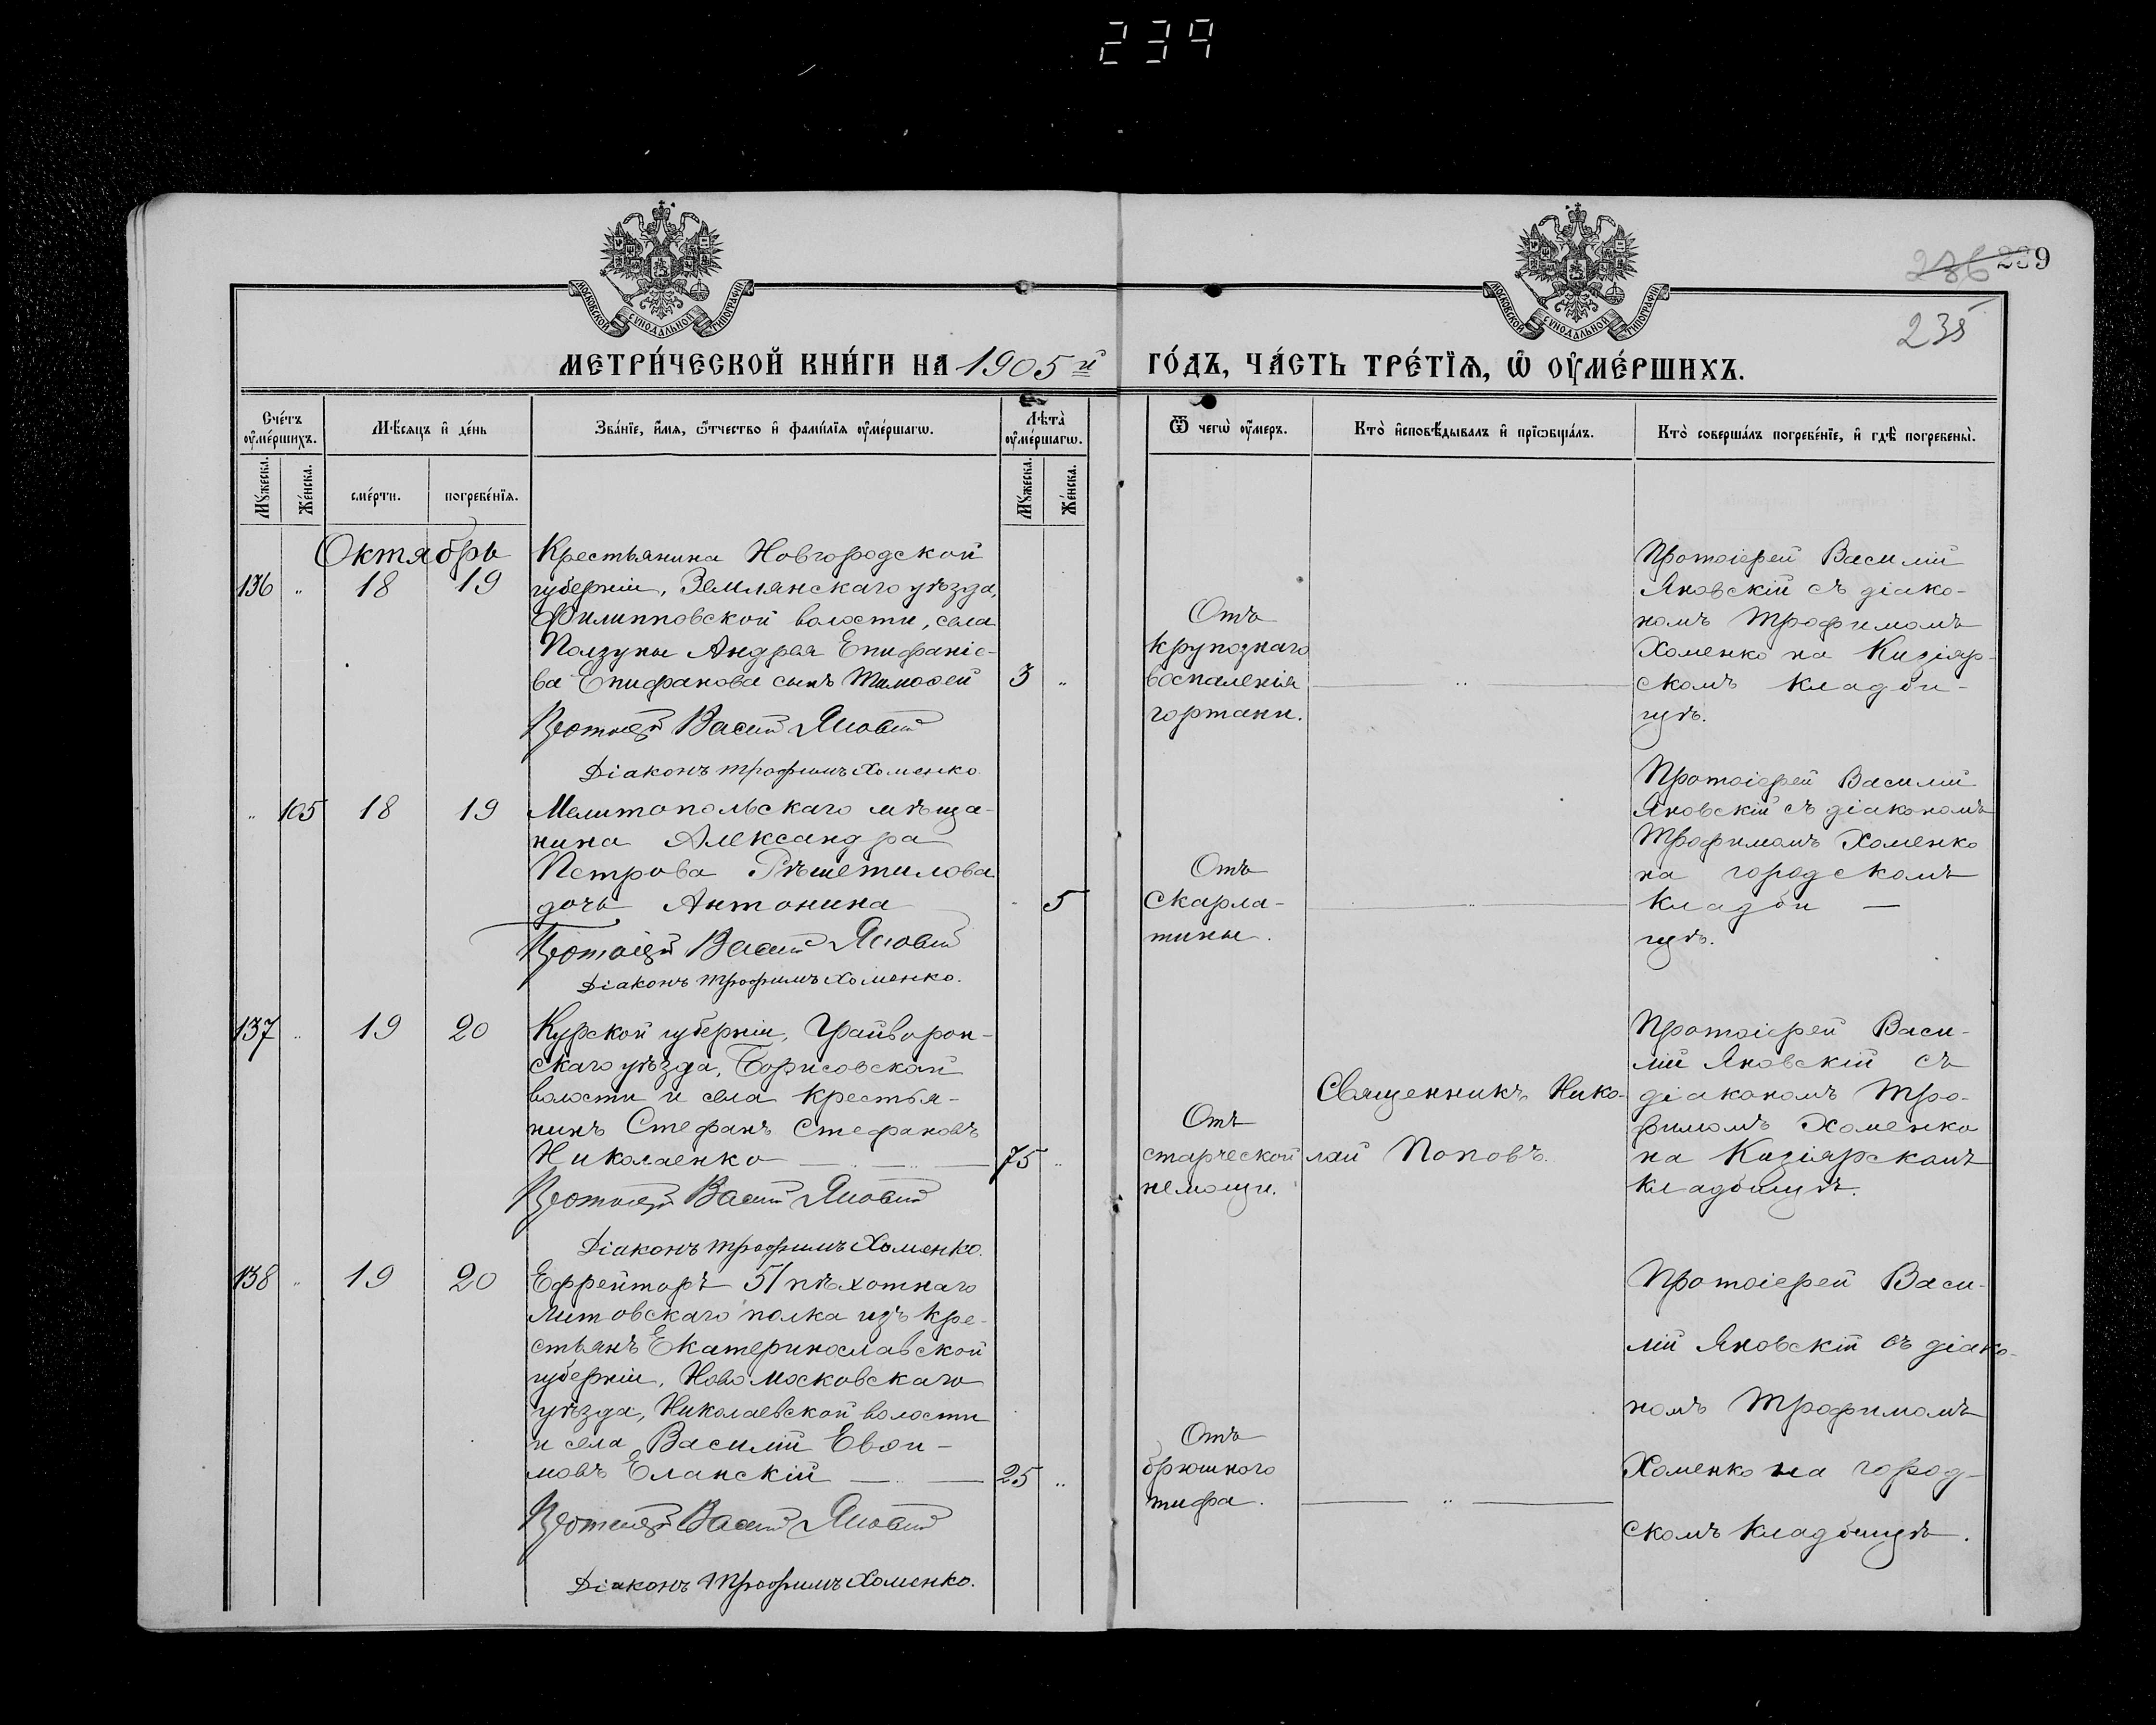 239
286 239
235
МОСКОВСКОЙ СѴНОДАЛЬНОЙ ТИПОГРАФІИ
МОСКОВСКОЙ СѴНОДАЛЬНОЙ ТИПОГРАФІИ
МЕТРИ́ЧЕСКОЙ КНИ́ГИ НА 1905й ГО́ДЪ, ЧА́СТЬ ТРЕ́ТЇѦ, Ѽ ОУ҆МЕ́РШИХЪ.
Сче́тъ оу҆ме́ршихъ.
Мѣ́сѧцъ и҆ де́нь
Зва́нїе, и҆́мѧ, ѻ҆́тчество и҆ фами́лїѧ оу҆ме́ршагѡ.
Лѣта̀ оу҆ме́ршагѡ.
Ѿ чегѡ̀ оу҆́меръ.
Кто̀ и҆сповѣ́дывалъ и҆ прїѡбща́лъ.
Кто̀ соверша́лъ погребе́нїе, и҆ гдѣ̀ погребены̀.
Мꙋ́жеска.
Же́нска.
сме́рти.
погребе́нїѧ.
Мꙋ́жеска.
Же́нска.
Октябрь
136 " 18 19
Крестьянина Новгородской
губерніи, Землянскаго уѣзда,
Филипповской волости, села
Ползуны Андрея Епифаніе-
ва Епифанова сынъ Тимоѳей 3 "
Протоіерей Василій Яновскій
Діаконъ Трофимъ Хоменко.
Отъ
крупознаго
воспаленія
гортани.
Протоіерей Василій
Яновскій съ діако-
номъ Трофимомъ
Хоменко на Кизіяр-
скомъ кладби-
щѣ.
" 105 18 19
Мелитопольскаго мѣща-
нина Александра
Петрова Рѣшетилова
дочь Антонина " 5
Протоіерей Василій Яновскій
Діаконъ Трофимъ Хоменко.
Отъ
скарла-
тины.
Протоіерей Василій
Яновскій съ діакономъ
Трофимомъ Хоменко
на городскомъ
кладби —
щѣ.
137 " 19 20
Курской губерніи, Грайворон-
скаго уѣзда, Борисовской
волости и села крестья-
нинъ Стефанъ Стефановъ
Николаенко 75 "
Протоіерей Василій Яновскій
Діаконъ Трофимъ Хоменко.
Отъ
старческой
немощи.
Священникъ Нико-
лай Поповъ.
Протоіерей Васи-
лій Яновскій съ
діакономъ Тро-
фимомъ Хоменко
на Кизіярскомъ
кладбищѣ.
138 " 19 20
Ефрейторъ 51 пѣхотнаго
Литовскаго полка изъ кре-
стьянъ Екатеринославской
губерніи, Новомосковскаго
уѣзда, Николаевской волости
и села Василій Евѳи-
мовъ Еланскій 25 "
Протоіерей Василій Яновскій
Діаконъ Трофимъ Хоменко.
Отъ
брюшного
тифа.
Протоіерей Васи-
лій Яновскій съ діако-
номъ Трофимомъ
Хоменко на город-
скомъ кладбищѣ.